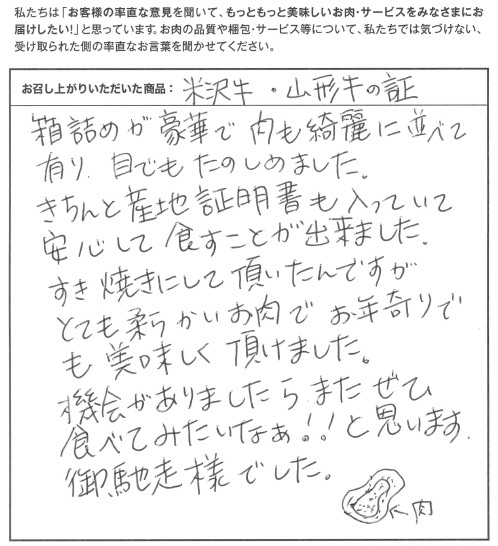 私たちは「お客様の率直な意見を聞いて、もっともっと美味しいお肉・サービスをみなさまにお
届けしたい!」と思っています。お肉の品質や梱包・サービス等について、私たちでは気づけない、
受け取られた側の率直なお言葉を聞かせてください。
お召し上がりいただいた商品： 米沢牛・山形牛の証
箱詰めが豪華で肉も綺麗に並べて
有り、目でもたのしめました。
きちんと産地証明書も入っていて
安心して食すことが出来ました。
すき焼きにして頂いたんですが
とても柔らかいお肉でお年寄りで
も美味しく頂けました。
機会がありましたらまたぜひ
食べてみたいなぁ!!と思います。
御馳走様でした。
肉